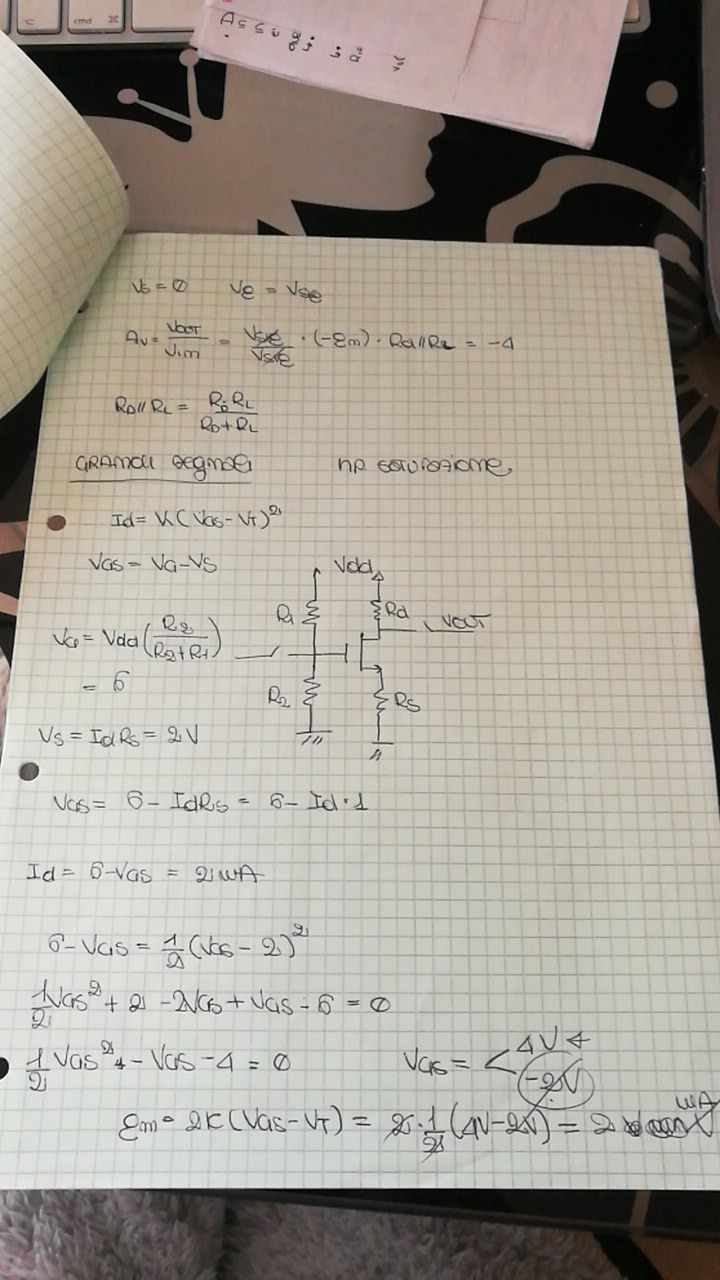 cmd ⌘
Vs = 0 Ve = Vse
Av = Vout/Vin = Vse/Vse · (-gm) · Rd//RL = -4
RD//RL = RD RL/RD+RL
GRANDI segnali np. saturazione
Id = K(VGS - VT)²
VGS = VG - VS
Vdd
R1 Rd Vout
VG = Vdd(R2/R2+R1)
= 6
R2 RS
VS = IdRS = 2V
VGS = 6 - IdRS = 6 - Id·1
Id = 6-VGS = 2mA
6 - VGS = 1/2(VGS - 2)²
1/2VGS² + 2 - 2VGS + VGS - 6 = 0
1/2 VGS² - VGS - 4 = 0 VGS = < 4V
-2V
gm = 2K(VGS - VT) = 2·1/2(4V-2V) = 2 mA/V